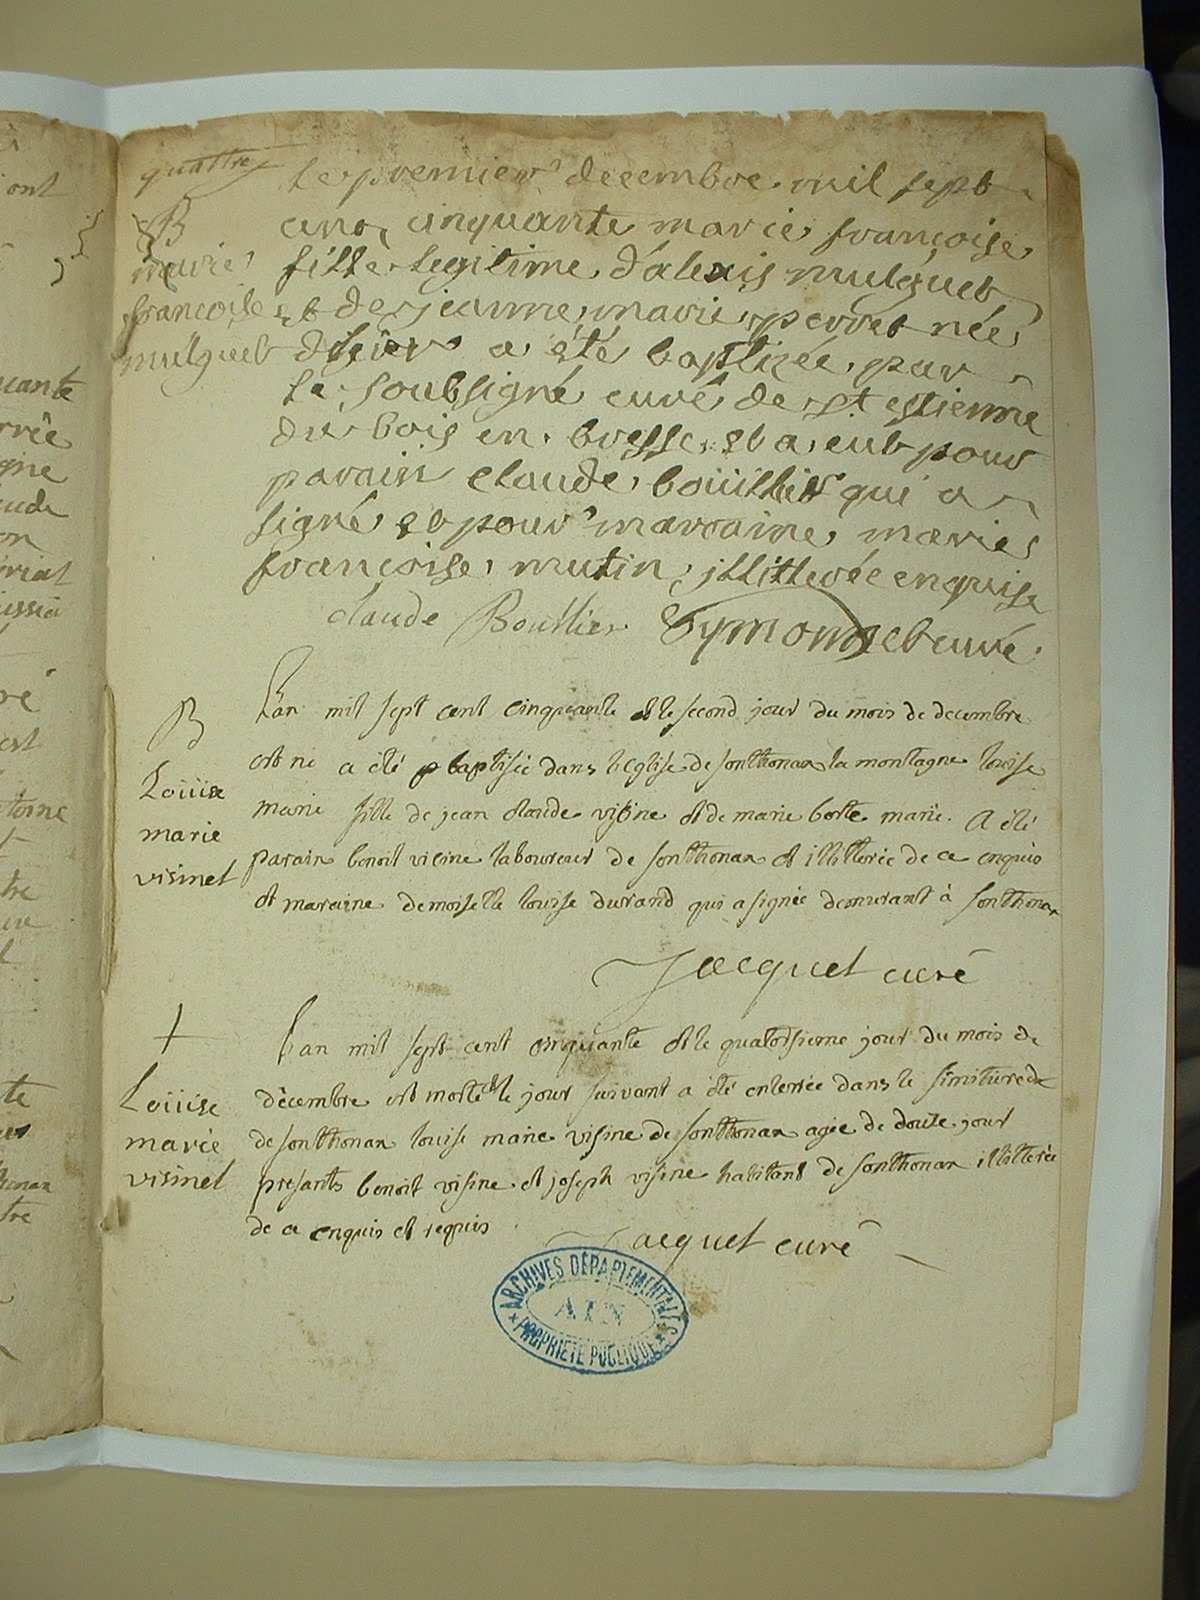 quattre
Le premier decembre mil sept
cent cinquante marie françoise
fille legitime d'alexis mulguet
et de jeanne marie perret née
d'hier a été baptizée par
le soubsigné curé de st estienne
du bois en bresse et a eut pour
parain claude boüillier qui a
signé et pour maraine marie
francoise mutin illitterée enquise
claude Bouillier Symonnet curé
B
marie
francoise
mulguet
L'an mil sept cent cinquante et le second jour du mois de decembre
est né a été baptisée dans l'Eglise de sonthonax la montagne louise
marie fille de jean claude visine et de marie borte marie. A été
parain benoit visine laboureur de sonthonax et illitterée de ce enquis
et maraine demoiselle louise durand qui a signée demurant à sonthonax
Jacquet curé
B
Loüise
marie
visinet
L'an mil sept cent cinquante et le quatorsieme jour du mois de
décembre est morte et le jour suivant a été enterrée dans le simitiere de
de sonthonax louise marie visine de sonthonax agée de douze jour
présants benoit visine et joseph visine habitant de sonthonax illitterée
de ce enquis et requis
Jacquet curé
+
Loüise
marie
visinet
ARCHIVES DÉPARTEMENTALES
AIN
PROPRIÉTÉ PUBLIQUE